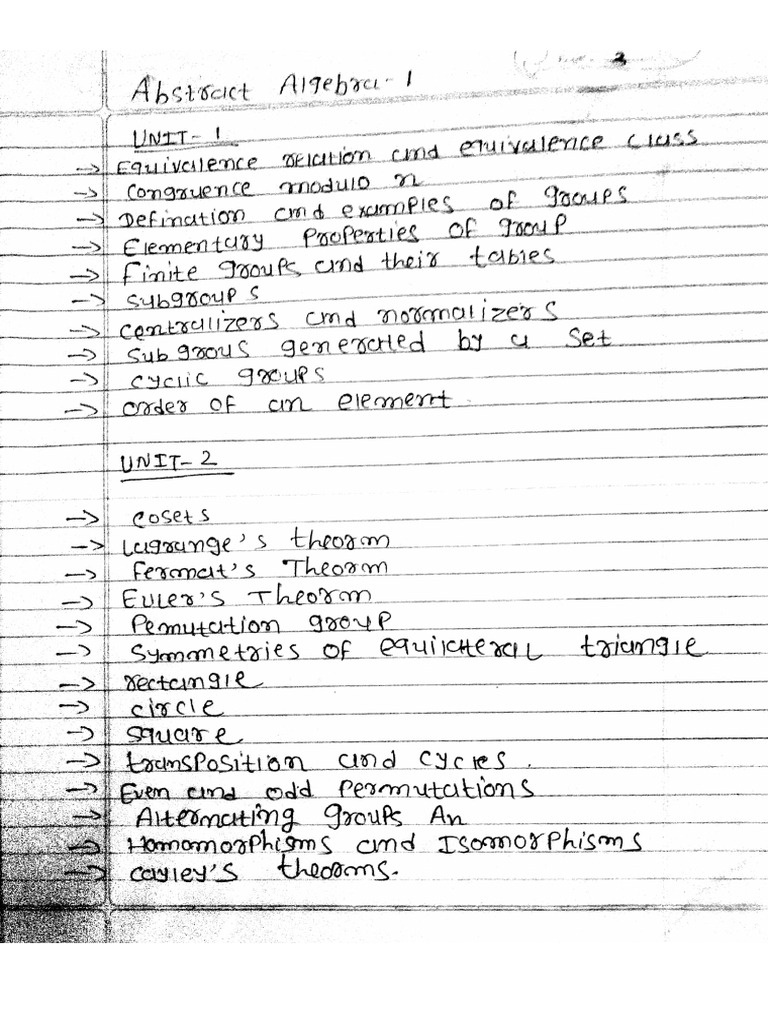 Abstract Algebra-1
UNIT-1
→ Equivalence relation and equivalence class
→ Congruence modulo n
→ Defination and examples of groups
→ Elementary Properties of group
→ Finite groups and their tables
→ subgroups
→ centralizers and normalizers
→ Sub grous generated by a set
→ cyclic groups
→ order of an element
UNIT-2
→ cosets
→ Lagrange's theorm
→ Fermat's Theorm
→ Euler's Theorm
→ Pemutation group
→ Symmetries of equilateral triangle
→ rectangle
→ circle
→ square
→ transposition and cycles.
→ Even and odd Permutations
→ Alternating groups An
→ Homomorphisms and Isomorphisms
→ Cayley's theorms.